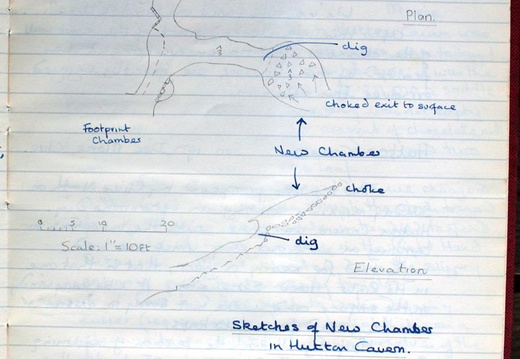 Plan.
dig
choked exit to surface
Footprint
Chamber
New Chamber
choke
0 5 10 20
Scale: 1"=10Ft
dig
Elevation
Sketches of New Chamber
in Hutton Cavern.